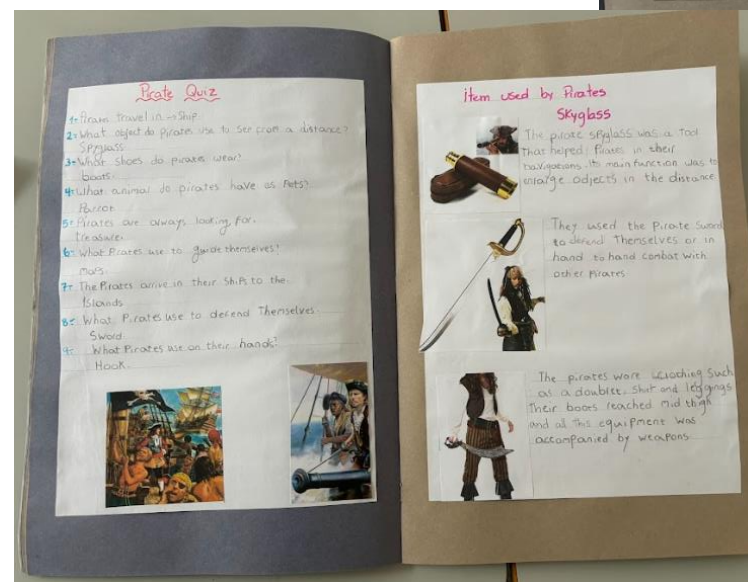 Pirate Quiz
1- Pirates travel in → Ship
2- What object do pirates use to see from a distance?
Spyglass
3- What shoes do pirates wear?
boots.
4- What animal do pirates have as Pets?
Parrot
5- Pirates are always looking for.
treasure.
6- What Pirates use to guide themselves?
maps.
7- The Pirates arrive in their Ships to the.
Islands
8- What Pirates use to defend Themselves.
Sword
9- What Pirates use on their hands?
Hook.
item used by Pirates
Skyglass
The pirate spyglass was a Tool
That helped Pirates in their
navigations. its main function was to
enlarge odjects in the distance
They used the Pirate Sword
to defend Themselves or in
hand to hand combat with
other Pirates
The pirates wore such
as a doublet, Shirt and leggings
Their boots reached mid thigh
and all this equipment was
accompanied by weapons.